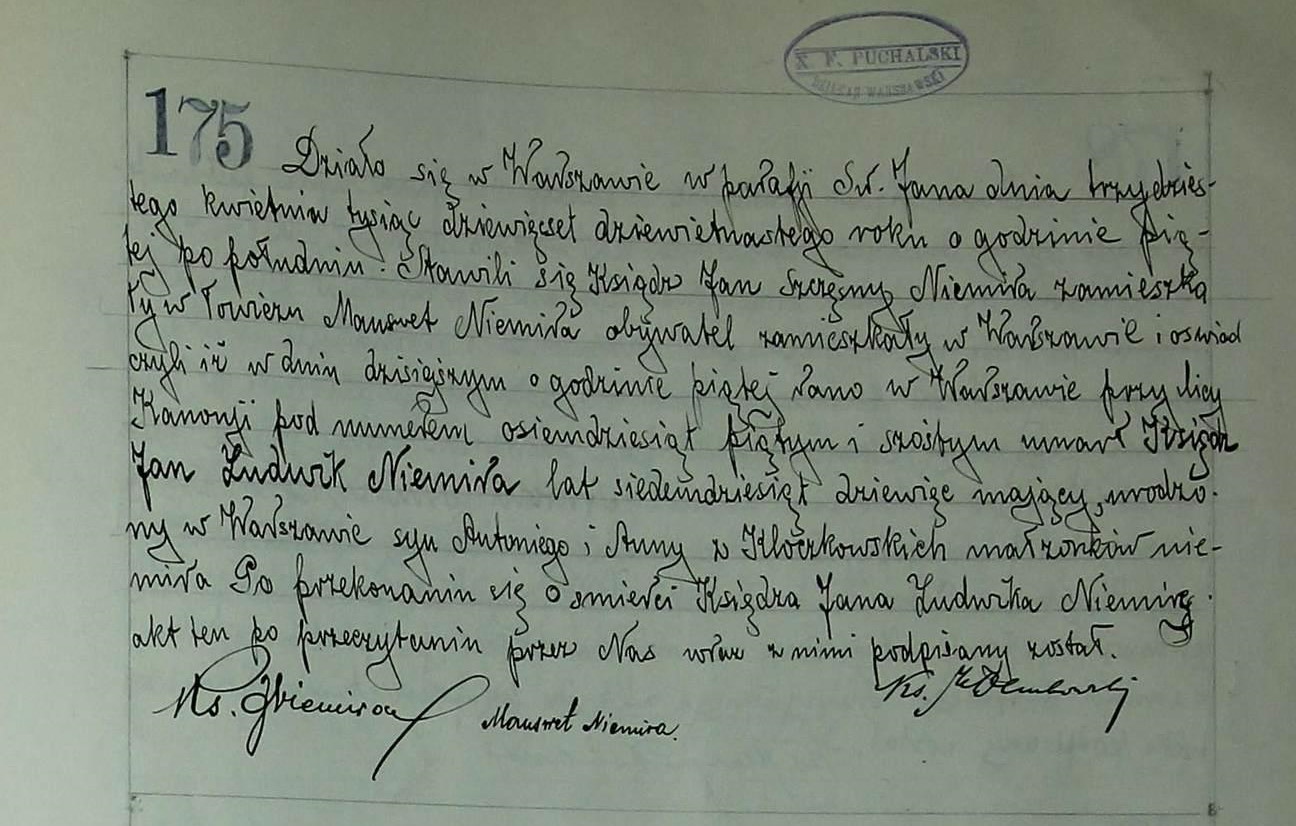 X F. PUCHALSKI
DZIEKAN WARSZAWSKI
175
Działo się w Warszawie w parafji Św. Jana dnia trzydzies-
tego kwietnia tysiąc dziewięcset dziewietnastego roku o godzinie pią-
tej po południu. Stawili się Ksiądz Jan Szczęsny Niemira zamieszka
ły w Łowiczu Mauswet Niemira obywatel zamieszkały w Warszawie i oswiad
czyli iż w dniu dzisiejszym o godzinie piątej rano w Warszawie przy ulicy
Kanonji pod numerem osiemdziesiąt piątym i szóstym umarł Ksiądz
Jan Ludwik Niemira lat siedemdziesiąt dziewięc mający, urodzo-
ny w Warszawie syn Antoniego i Anny z Kloczkowskich małżonków nie-
mira Po przekonaniu się o smierci Księdza Jana Ludwika Niemiry.
akt ten po przeczytaniu przez Nas wraz z nimi podpisany został.
Ks. JNiemira Mauswet Niemira. Ks.